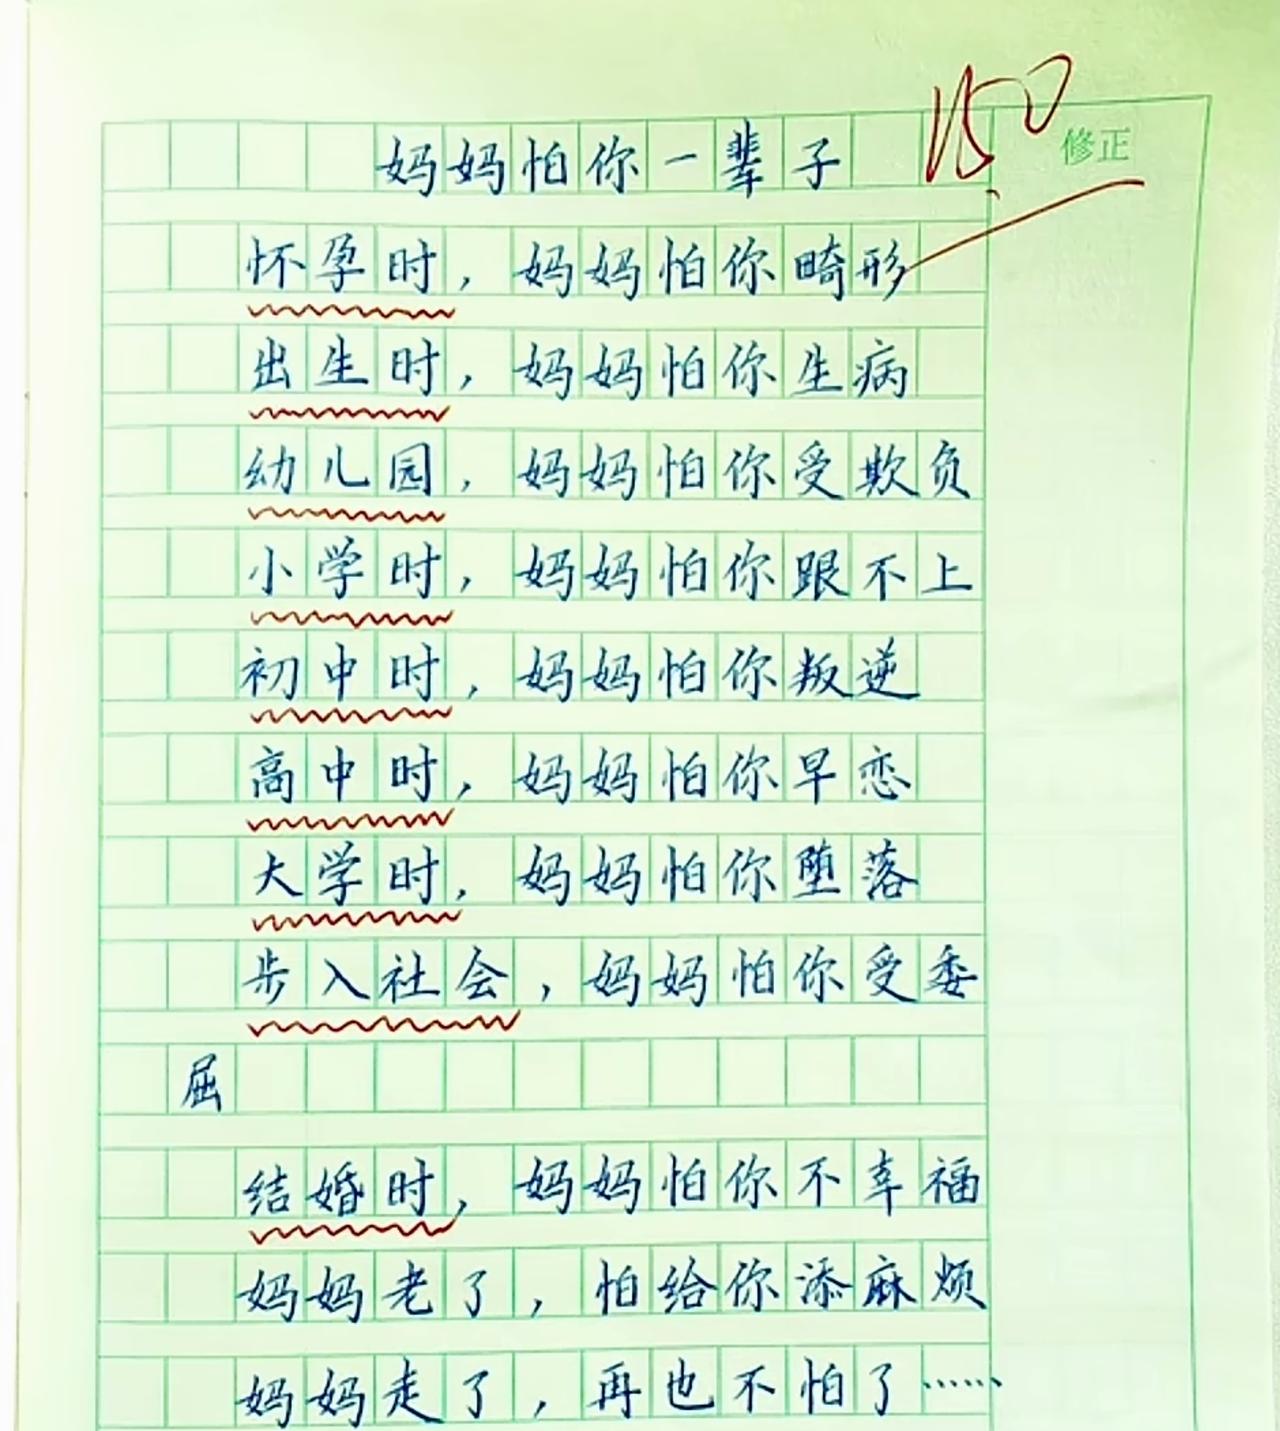 150
修正
妈妈怕你一辈子
怀孕时，妈妈怕你畸形
出生时，妈妈怕你生病
幼儿园，妈妈怕你受欺负
小学时，妈妈怕你跟不上
初中时，妈妈怕你叛逆
高中时，妈妈怕你早恋
大学时，妈妈怕你堕落
步入社会，妈妈怕你受委
屈
结婚时，妈妈怕你不幸福
妈妈老了，怕给你添麻烦
妈妈走了，再也不怕了……